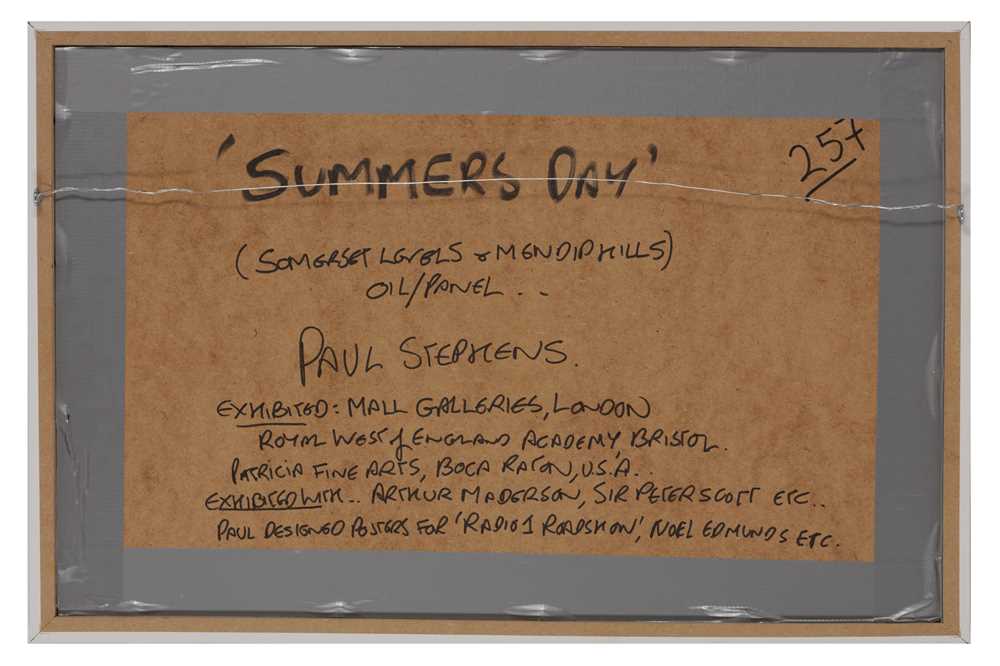 'SUMMERS DAY'
257
(SOMERSET LEVELS & MENDIP HILLS)
OIL/PANEL . .
PAUL STEPHENS.
EXHIBITED: MALL GALLERIES, LONDON
ROYAL WEST of ENGLAND ACADEMY BRISTOL.
PATRICIA FINE ARTS, BOCA RATON, U.S.A. .
EXHIBITED WITH.. ARTHUR MADERSON, SIR PETER SCOTT ETC..
PAUL DESIGNED POSTERS FOR 'RADIO 1 ROADSHOW', NOEL EDMUNDS ETC.